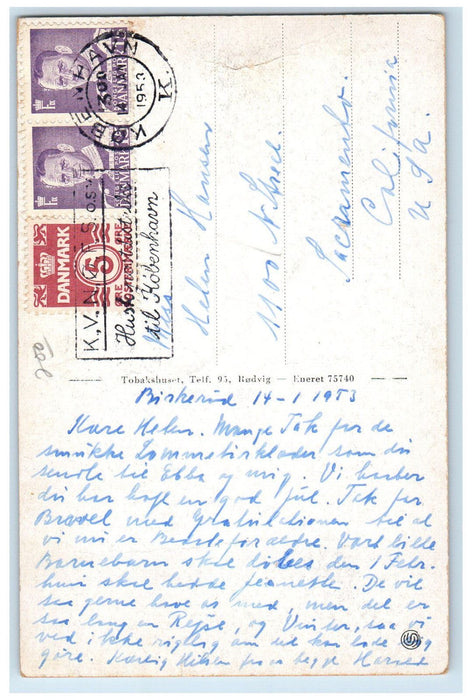 KØBENHAVN K.
14 JANUAR
1953
DANMARK
DANMARK
DANMARK
5
ØRE
K.V.N.K.F.S.
Husk
til København
Miss
Helen Hansen
1100 N Street
Sacramento.
California
USA.
Tobakshuset, Telf. 95, Rødvig — Eneret 75740
Birkerød 14-1 1953
Kære Helen. Mange Tak for de
smukke Lommetørklæder som du
sendte til Ebba og mig. Vi haaber
du har haft en god Jul. Tak for
Brevet med Gratulationen til at
vi nu er Bedsteforældre. Vort lille
Barnebarn skal døbes den 1 Febr.
hun skal hedde Jeanette. De vil
saa gerne have os med, men det er
saa lang en Rejse, og Vinter, saa vi
ved ikke rigtig om det kan lade sig
gøre. Kærlig Hilsen fra begge Harald